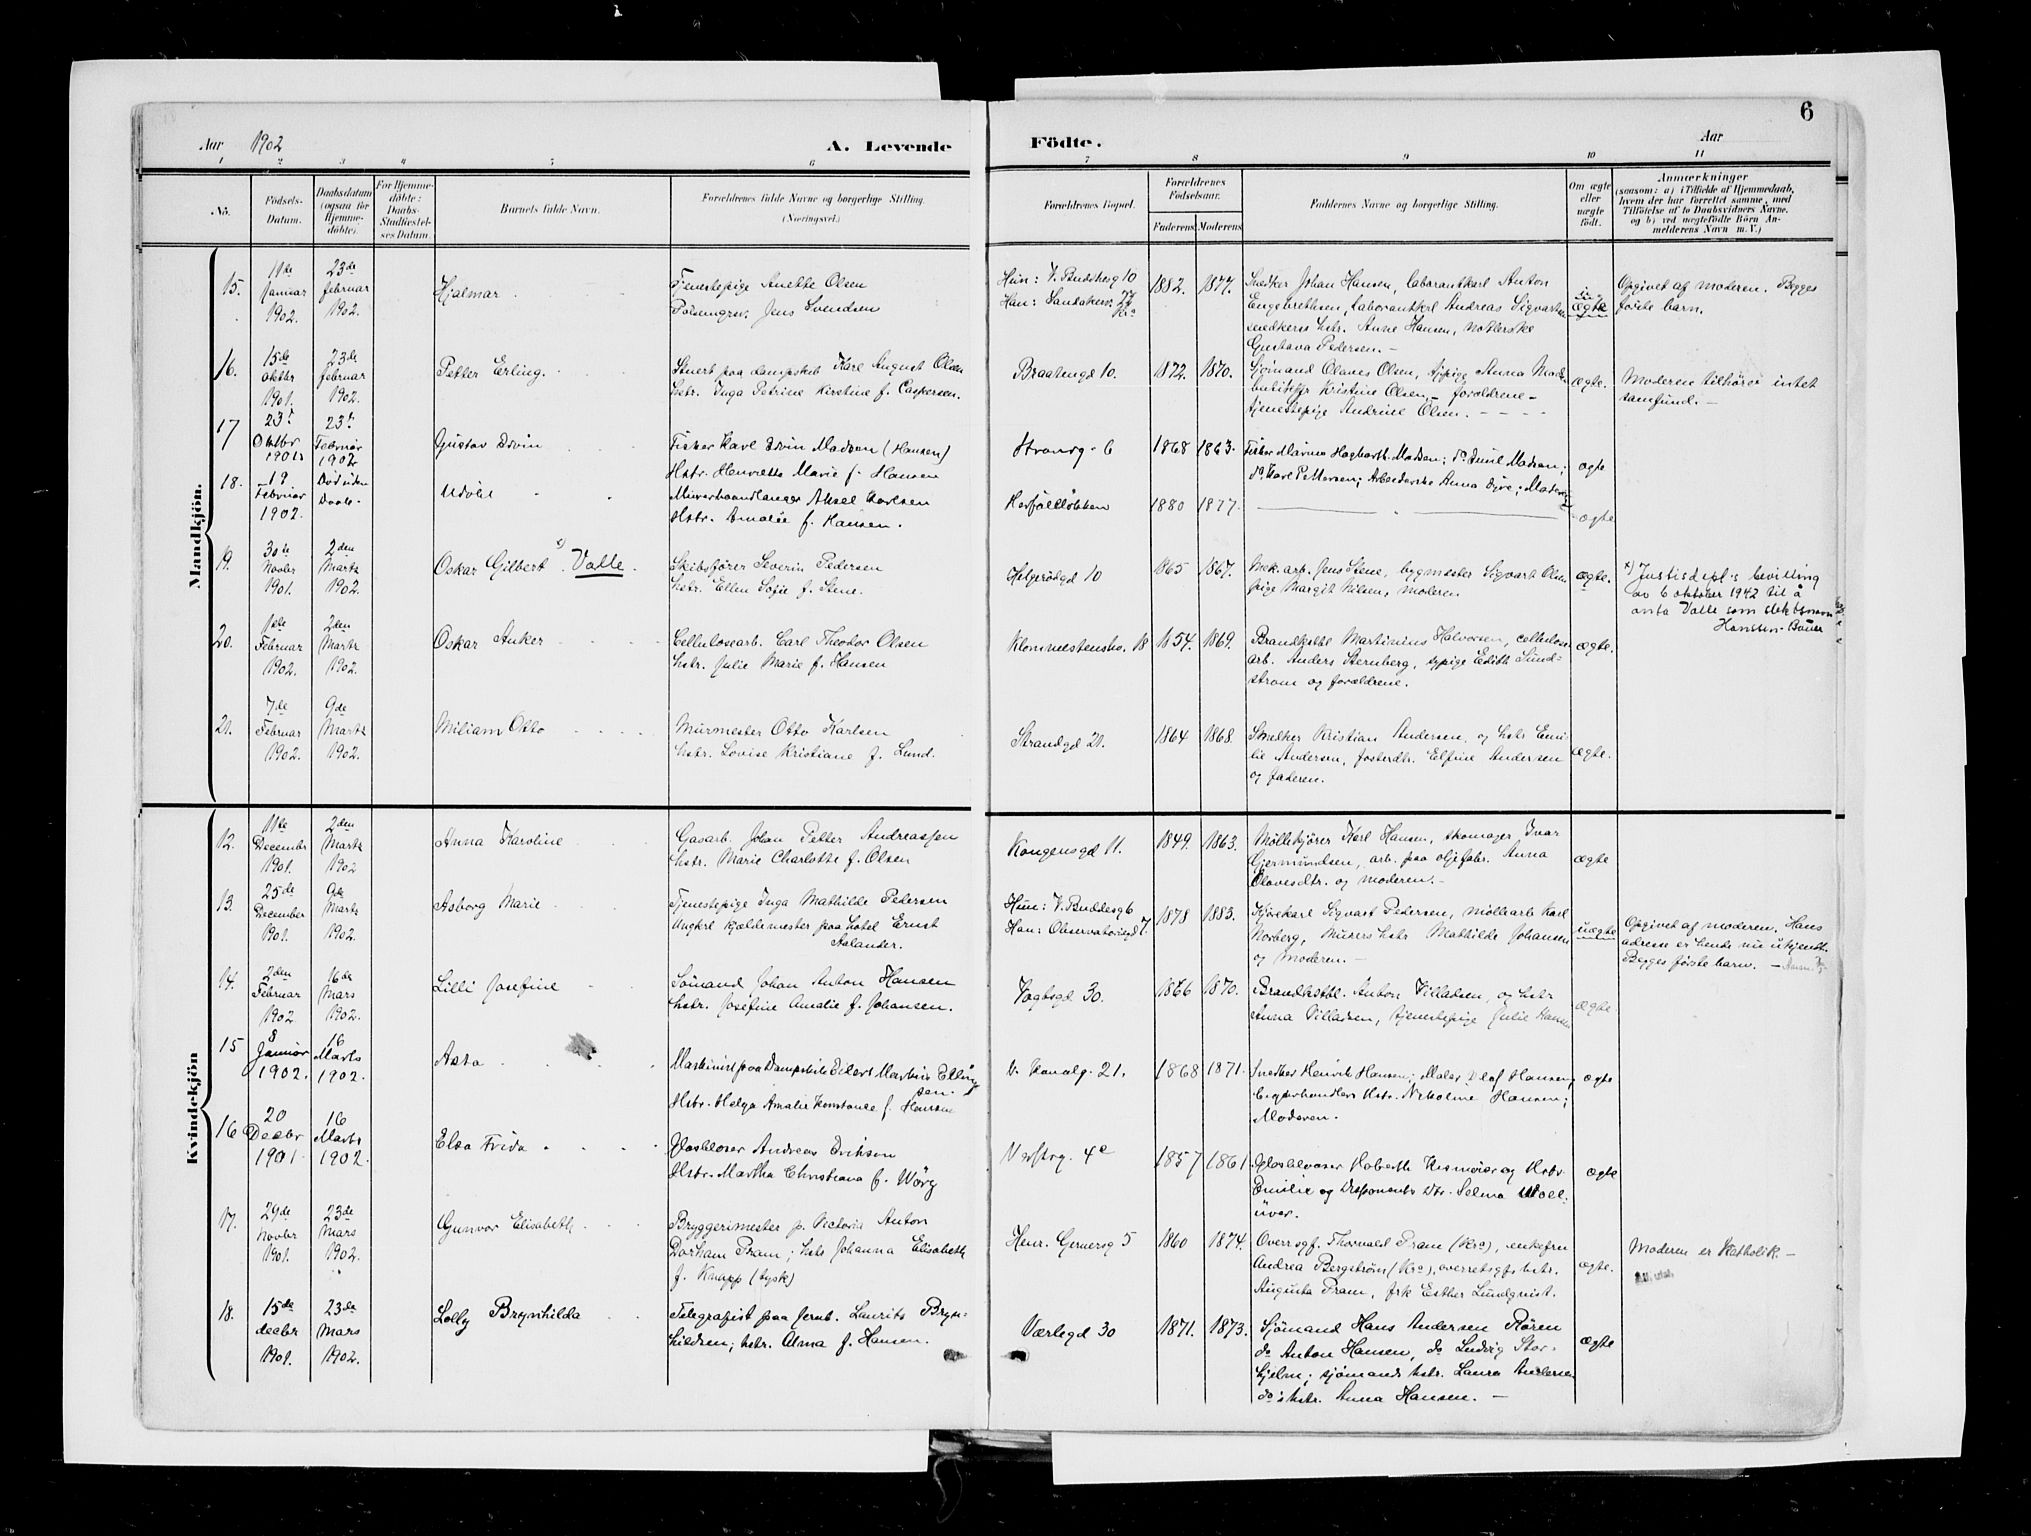 6
Aar 1902
A. Levende
Födte.
Aar
1 2 3 4 5 6 7 8 9 10 11
No.
Födsels-
Datum.
Daabsdatum
(ogsaa for
Hjemme-
döbte).
For Hjemme-
döbte:
Daabs-
Stadfestel-
ses Datum.
Barnets fulde Navn.
Forældrenes fulde Navne og borgerlige Stilling.
(Næringsvei.)
Forældrenes Bopæl.
Forældrenes
Födselsaar.
Faderens Moderens
Faddernes Navne og borgerlige Stilling.
Om ægte
eller
uægte
födt.
Anmærkninger
(saasom: a) i Tilfælde af Hjemmedaab,
hvem der har forrettet samme, med
Tilföielse af to Daabsvidners Navne.
og b) ved uægtefödte Börn An-
melderens Navn m. V.)
Mandkjön.
15.
11te
Januar
1902.
23de
februar
1902.
Hjalmar
Tjenestepige Anette Olsen
Pölsemgsv. Jens Svendsen
Hun: V. Buddesg 10
Han: Sandakerv.
1882. 1877.
Snedker Johan Hansen, laborantkarl Anton
Engebrethsen, laborantkrl Andreas Sigvartsen
snedkers hstr. Anne Hansen,
Gustava Pedersen. -
uægte
Opgivet af moderen. Begges
første barn.
16.
15de
oktbr
1901.
23de
februar
1902.
Petter Erling.
Stuert paa dampskib Karl August Olsen
hstr. Inga Petrine Kirstine f. Caspersen.
Braatengd 10.
1872. 1870.
Sjømand Olaves Olsen, sypige Anna
Kristine Olsen, - forældrene -
tjenestepige Andrine Olsen. - - - -
ægte.
Moderen tilhører intet
samfund. -
17
23de
Oktbr
1901
23de
Februar
1902
Gustav Edvin
Fisker Karl Edvin Madsen (Hansen)
Hstr. Henriette Marie f. Hansen
Strandg. 6
1868 1863.
Fisker Marius Hagbarth Madsen; do Emil Madsen;
do Karl Pettersen; Arbeiderske Anna Dyre; Moderen
ægte
18.
19
Februar
1902.
Död uden
Daab.
Udöbt
Murerhaandlanger Aksel Karlsen
Hstr. Amalie f. Hansen.
Herföllökken
1880 1877.
ægte
19.
30te
Novbr
1901.
2den
Marts
1902.
Oskar Gilbert x) Valle.
Skibsfører Severin Pedersen
hstr. Ellen Sofie f. Stene.
Helgerödgd 10
1865 1867.
Mek. arb. Jens Stene, bygmester Sigvart Olsen
pige Margit Nilsen, moderen
ægte.
x) Justisdep.'s bevilling
av 6 oktober 1942 til å
anta Valle som slektsnavn
Hanssen-Bauer
20.
1ste
Februar
1902.
2den
Marts
1902.
Oskar Anker
Cellulosearb. Carl Theodor Olsen
hstr. Julie Marie f. Hansen
18
1854. 1869.
Brandkstbl Martinius Halvorsen, cellulose
arb. Anders Sternberg, sypige Edith Sund-
strøm og forældrene.
ægte.
21.
7de
Februar
1902.
9de
Marts
1902.
Miliam Otto
Murmester Otto Karlsen
hstr. Lovise Kristiane f. Lund.
Strandgd 21.
1864 1868.
Smelter Kristian Andersen, og hstr Emi-
lie Andersen, fosterdtr. Elfine Andersen
og faderen.
ægte.
Kvindekjön
12.
11te
Decembr
1901.
2den
Marts
1902
Anna Karoline
Gasarb. Johan Petter Andreassen
hstr. Marie Charlotte f. Olsen
Kongensgd 11.
1849. 1863.
Møllekjører Karl Hansen, skomager Ivar
Gjermundsen, arb. paa oljefabr. Anna
Olavesdtr. og moderen. -
ægte
13.
25de
December
1901.
9de
Marts
1902.
Asborg Marie
Tjenestepige Inga Mathilde Pedersen
Ungkrl kjældemester paa hotel Ernst
Aalander.
Hun: V. Buddesg 6
Han: Observatoriegd 7.
1878 1883.
Sigvart Pedersen, møllearb Karl
Norberg, Murers hstr Mathilde Johansen
og Moderen. -
uægte
Opgivet af moderen. Hans
adresse er hende nu ukjendt.
Begges første barn. -
14.
2den
Februar
1902
16de
Mars
1902.
Lilli Josefine
Sömand Johan Anton Hansen
hstr. Josefine Amalie f. Johansen.
Vogtsgd 30.
1866 1870.
Brandkstbl. Anton Villadsen, og hstr
Anna Villadsen, tjenestepige Julie Hansen
ægte.
15
8
Januar
1902.
16
Marts
1902.
Asta
Maskinist paa Dampskib Edvart Martin Elling-
sen.
Hstr. Helga Amalie Konstance f. Hansen
V. Kanalg. 21.
1868 1871.
Snedker Henrik Hansen; Maler Olaf Hansen;
Cigarhandlers Hstr. Nikoline Hansen;
Moderen.
ægte
16
20
Decbr
1901
16
Marts
1902.
Elsa Frida
Glasblæser Andreas Eriksen
Hstr. Martha Christiana f. Wörg
Verftsg. 4c
1857 1861.
Glasblæser Roberth og Hstr.
Emilie og Disponents Dtr. Selma
ægte
17.
29de
Novbr
1901.
23de
Mars
1902.
Gunvor Elisabeth
Bryggerimester p. Victoria Anton
Dorham Fram; hstr Johanna Elisabeth
f. Knapp (tysk)
Henr. Gernersg 5
1860 1874.
Overrsgf. Thorvald Fram (Kra), enkefru
Andrea Bergstrøm (Kra), overretsgfs hstr.
Augusta Fram, frk Esther Lundqvist.
ægte.
Moderen er katholik. -
18.
15de
decbr
1901.
23de
Mars
1902.
Lolly Brynhilda
Telegrafist paa Jernb. Laurits Bryn-
hildsen; hstr. Alma f. Hansen.
Værlegd 30
1871. 1873.
Sjömand Hans Andersen Rören
do Anton Hansen, do Ludvig Stor-
hjelm; sjömands hstr. Laura Andersen
do's hstr. Anna Hansen. -
ægte